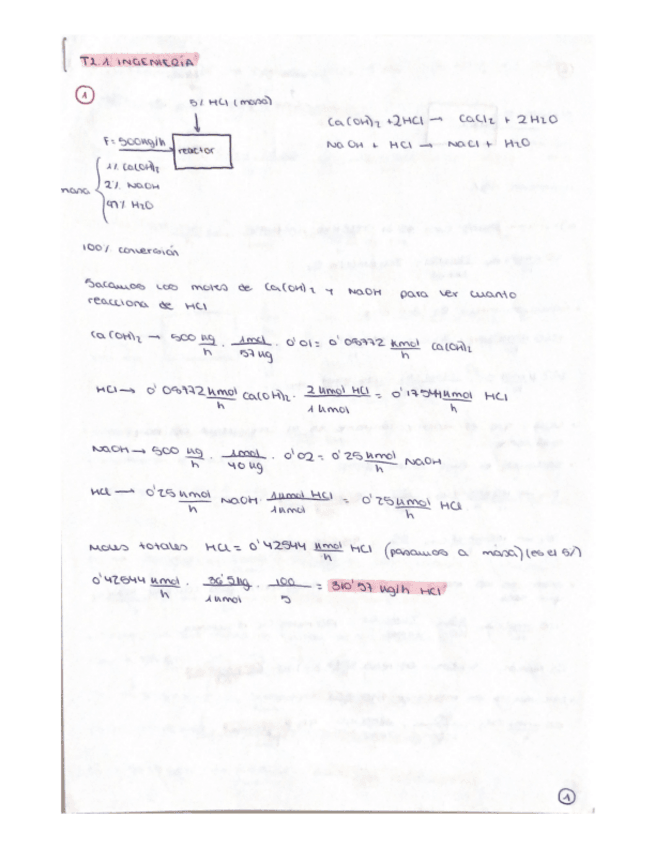 T2.1 INGENIERÍA
1
5% HCl (masa)
Ca(OH)2 + 2HCl → CaCl2 + 2H2O
F = 500kg/h
reactor
NaOH + HCl → NaCl + H2O
masa
1% Ca(OH)2
2% NaOH
97% H2O
100% conversión
Sacamos los moles de Ca(OH)2 y NaOH para ver cuanto
reacciona de HCl
Ca(OH)2 → 500 kg/h · 1mol/57 kg · 0'01 = 0'08772 kmol/h Ca(OH)2
HCl → 0'08772 kmol/h Ca(OH)2 · 2 kmol HCl/1 kmol = 0'17544 kmol/h HCl
NaOH → 500 kg/h · 1mol/40 kg · 0'02 = 0'25 kmol/h NaOH
HCl → 0'25 kmol/h NaOH 1 kmol HCl/1 kmol = 0'25 kmol/h HCl
Moles totales HCl = 0'42544 kmol/h HCl (pasamos a masa) (es el 5%)
0'42544 kmol/h · 36'5 kg/1 kmol · 100/5 = 310'57 kg/h HCl
1